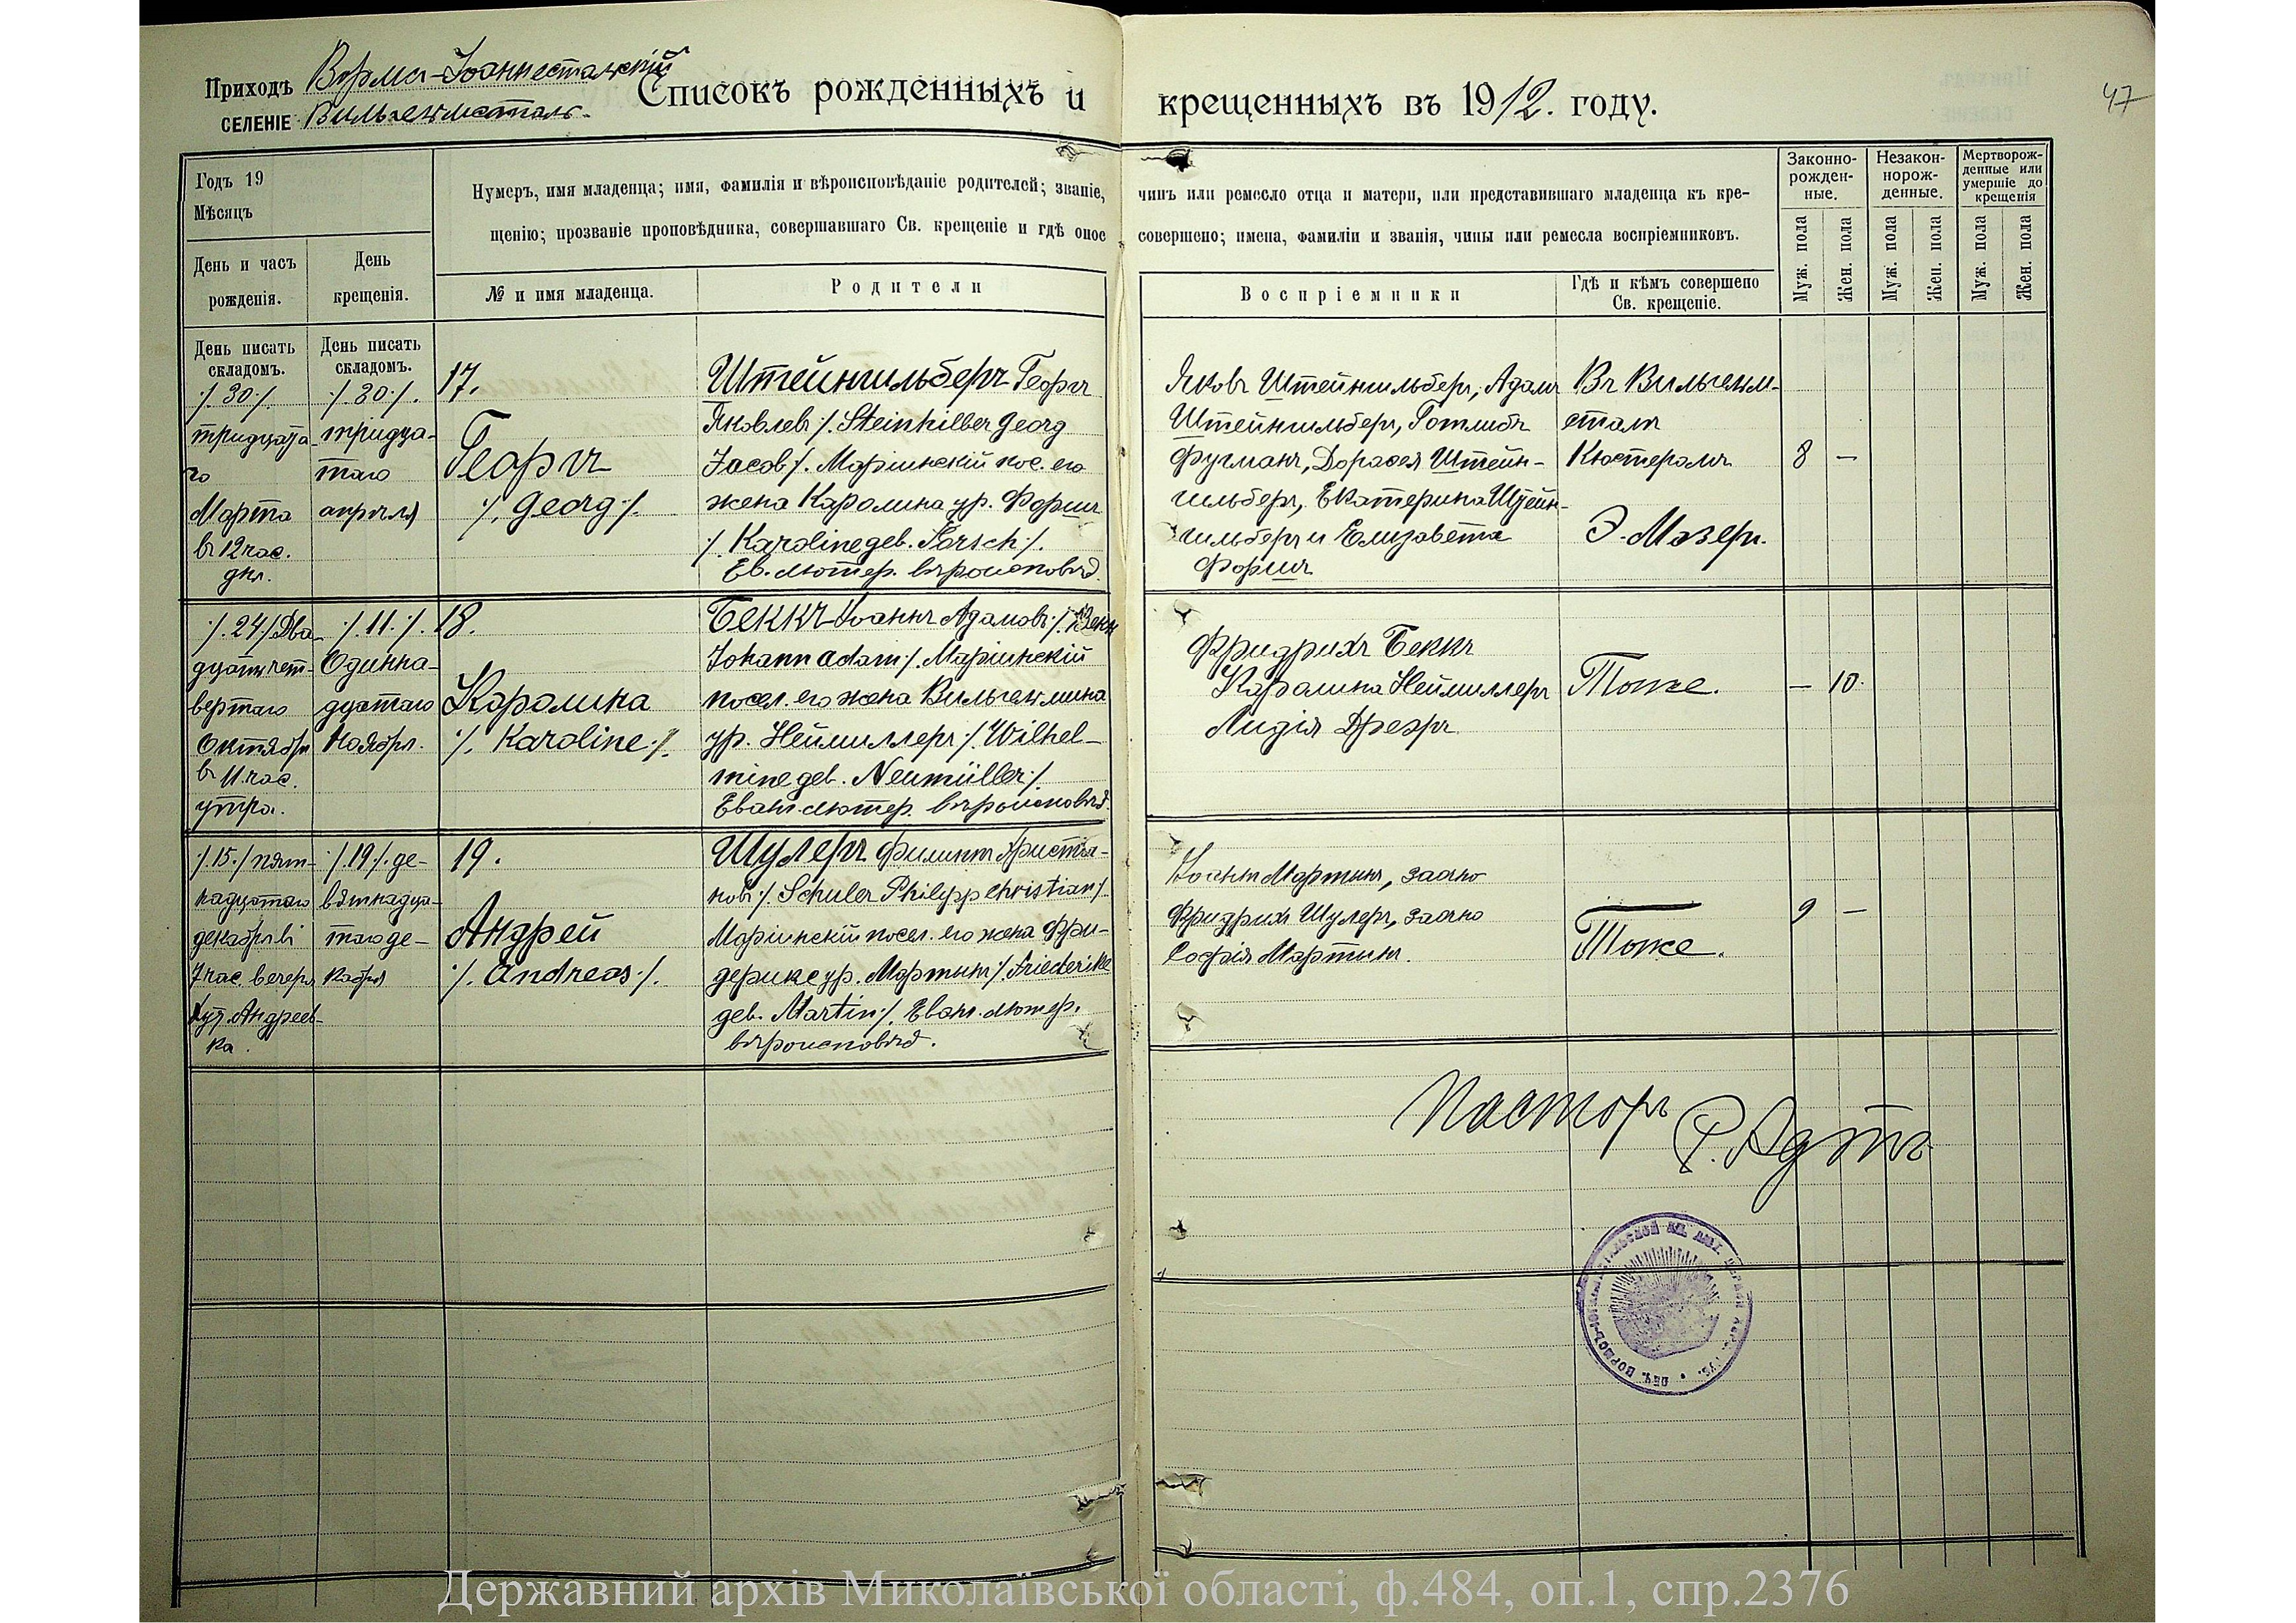 Приходъ Вормс-Іоаннестальскій
селеніе Вильгельмсталь.
Списокъ рожденныхъ и крещенныхъ въ 1912. году.
47
Годъ 19
Мѣсяцъ
День и часъ рожденія.
День крещенія.
Нумеръ, имя младенца; имя, фамилія и вѣроисповѣданіе родителей; званіе, чинъ или ремесло отца и матери, или представившаго младенца къ кре-
щенію; прозваніе проповѣдника, совершавшаго Св. крещеніе и гдѣ оное совершено; имена, фамиліи и званія, чины или ремесла воспріемниковъ.
№ и имя младенца.
Родители
Воспріемники
Гдѣ и кѣмъ совершено
Св. крещеніе.
Законно-
рожден-
ные.
Незакон-
норож-
денные.
Мертворож-
денные или
умершіе до
крещенія
Муж. пола
Жен. пола
Муж. пола
Жен. пола
Муж. пола
Жен. пола
День писать
складомъ.
День писать
складомъ.
/.30./.
тридцата
го
Марта
въ 12 час.
дня.
/.30./.
тридца-
таго
апрѣля
17.
Георгъ
/. Georg ./.
Штейнгильберъ Георгъ
Яковлевъ /. Steinhilber Georg
Jacob /. Маріинскій пос. его
жена Каролина ур. Форшъ
/. Karoline geb. Forsch /.
Ев. лютер. вѣроисповѣд.
Яковъ Штейнгильберъ, Адамъ
Штейнгильберъ, Готлибъ
Фурманъ, Доротея Штейн-
гильберъ, Екатерина Штейн-
гильберъ и Елизавета
Форшъ
Въ Вильгельм-
сталѣ
Кюстеромъ
Э. Мазеръ.
8 —
/.24/ Два
дцать чет-
вертаго
Октября
въ 11 час.
утра.
/.11./.
Одинна-
дцатаго
Ноября.
18.
Каролина
/. Karoline ./.
Беккъ Іоаннъ Адамовъ /. Bekk
Johann Adam /. Маріинскій
посел. его жена Вильгельмина
ур. Неймиллеръ /. Wilhel-
mine geb. Neumüller /.
Еванг. лютер. вѣроисповѣд.
Фридрихъ Беккъ
Каролина Неймиллеръ
Лидія Дрезръ
Тоже.
— 10.
/.15./ пят-
надцатаго
декабря въ
7 час. вечера
Хут. Андреев-
ка.
/.19./. де-
вятнадца-
таго де-
кабря
19.
Андрей
/. Andreas ./.
Шулеръ Филиппъ Христіа-
новъ /. Schuler Philipp Christian /.
Маріинскій посел. его жена Фри-
дерике ур. Мартинъ /. Friederike
geb. Martin /. Еванг. лютер.
вѣроисповѣд.
Іоаннъ Мартинъ, заочно
Фридрихъ Шулеръ, заочно
Софія Мартинъ.
Тоже.
9 —
Пасторъ
Державний архів Миколаївської області, ф.484, оп.1, спр.2376